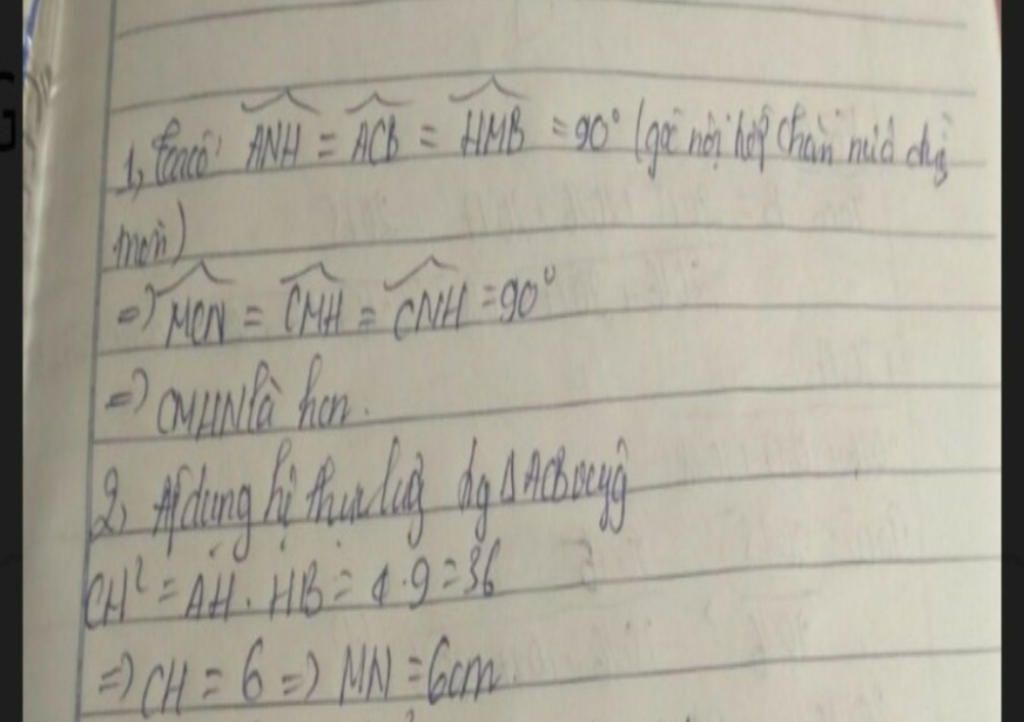 1, Ta có: ANH = ACB = HMB = 90° (góc nội tiếp chắn nửa đg
tròn)
=> MCN = CMH = CNH = 90°
=> CMHN là hcn.
2, Áp dụng hệ thức lượng
CH² = AH . HB = 4.9 = 36
=> CH = 6 => MN = 6cm.